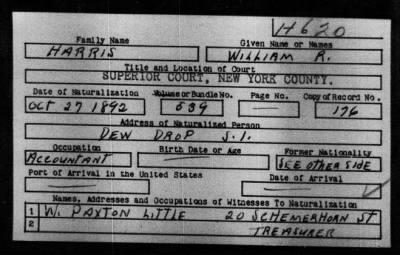 H620
Family Name Given Name or Names
HARRIS WILLIAM R.
Title and Location of Court
SUPERIOR COURT, NEW YORK COUNTY.
Date of Naturalization Volume or Bundle No. Page No. Copy of Record No.
OCT 27 1892 539 — 176
Address of Naturalized Person
DEW DROP S.I.
Occupation Birth Date or Age Former Nationality
ACCOUNTANT — SEE OTHER SIDE
Port of Arrival in the United States Date of Arrival
— —
Names, Addresses and Occupations of Witnesses To Naturalization
1 W. PAXTON LITTLE 20 SCHEMERHORN ST
2 TREASURER